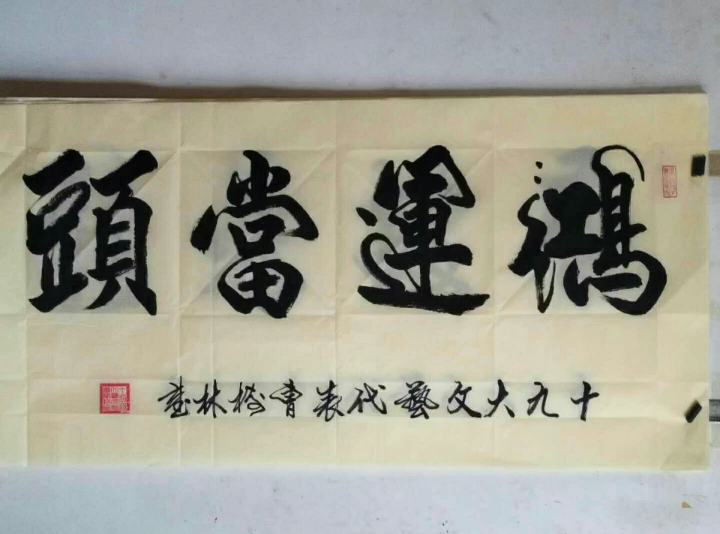 鴻運當頭
十九大文藝代表曹樹林書